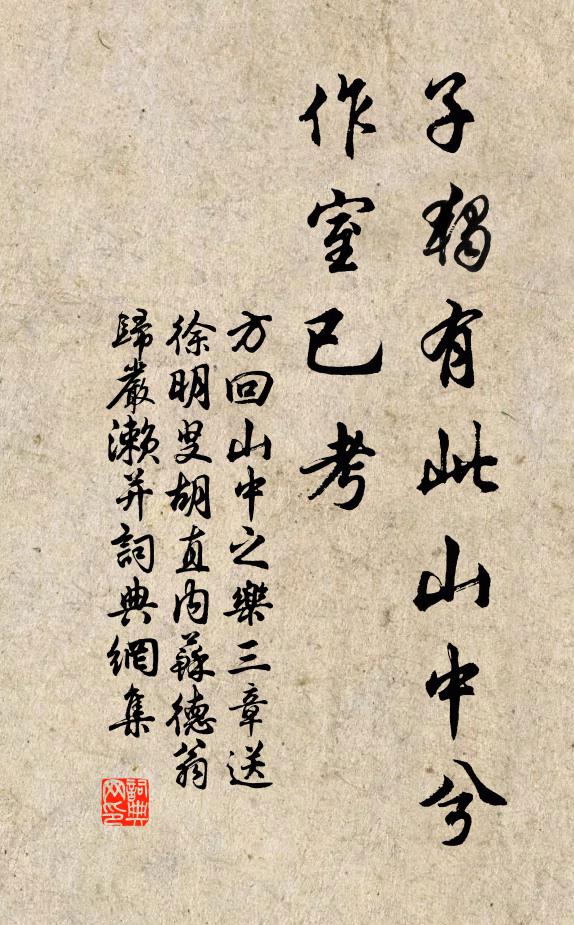 子獨有此山中兮
作室已考
方回山中之樂三章送
徐明叟胡直內蘇德翁
歸嚴瀨并詞典網集
詞典
网印